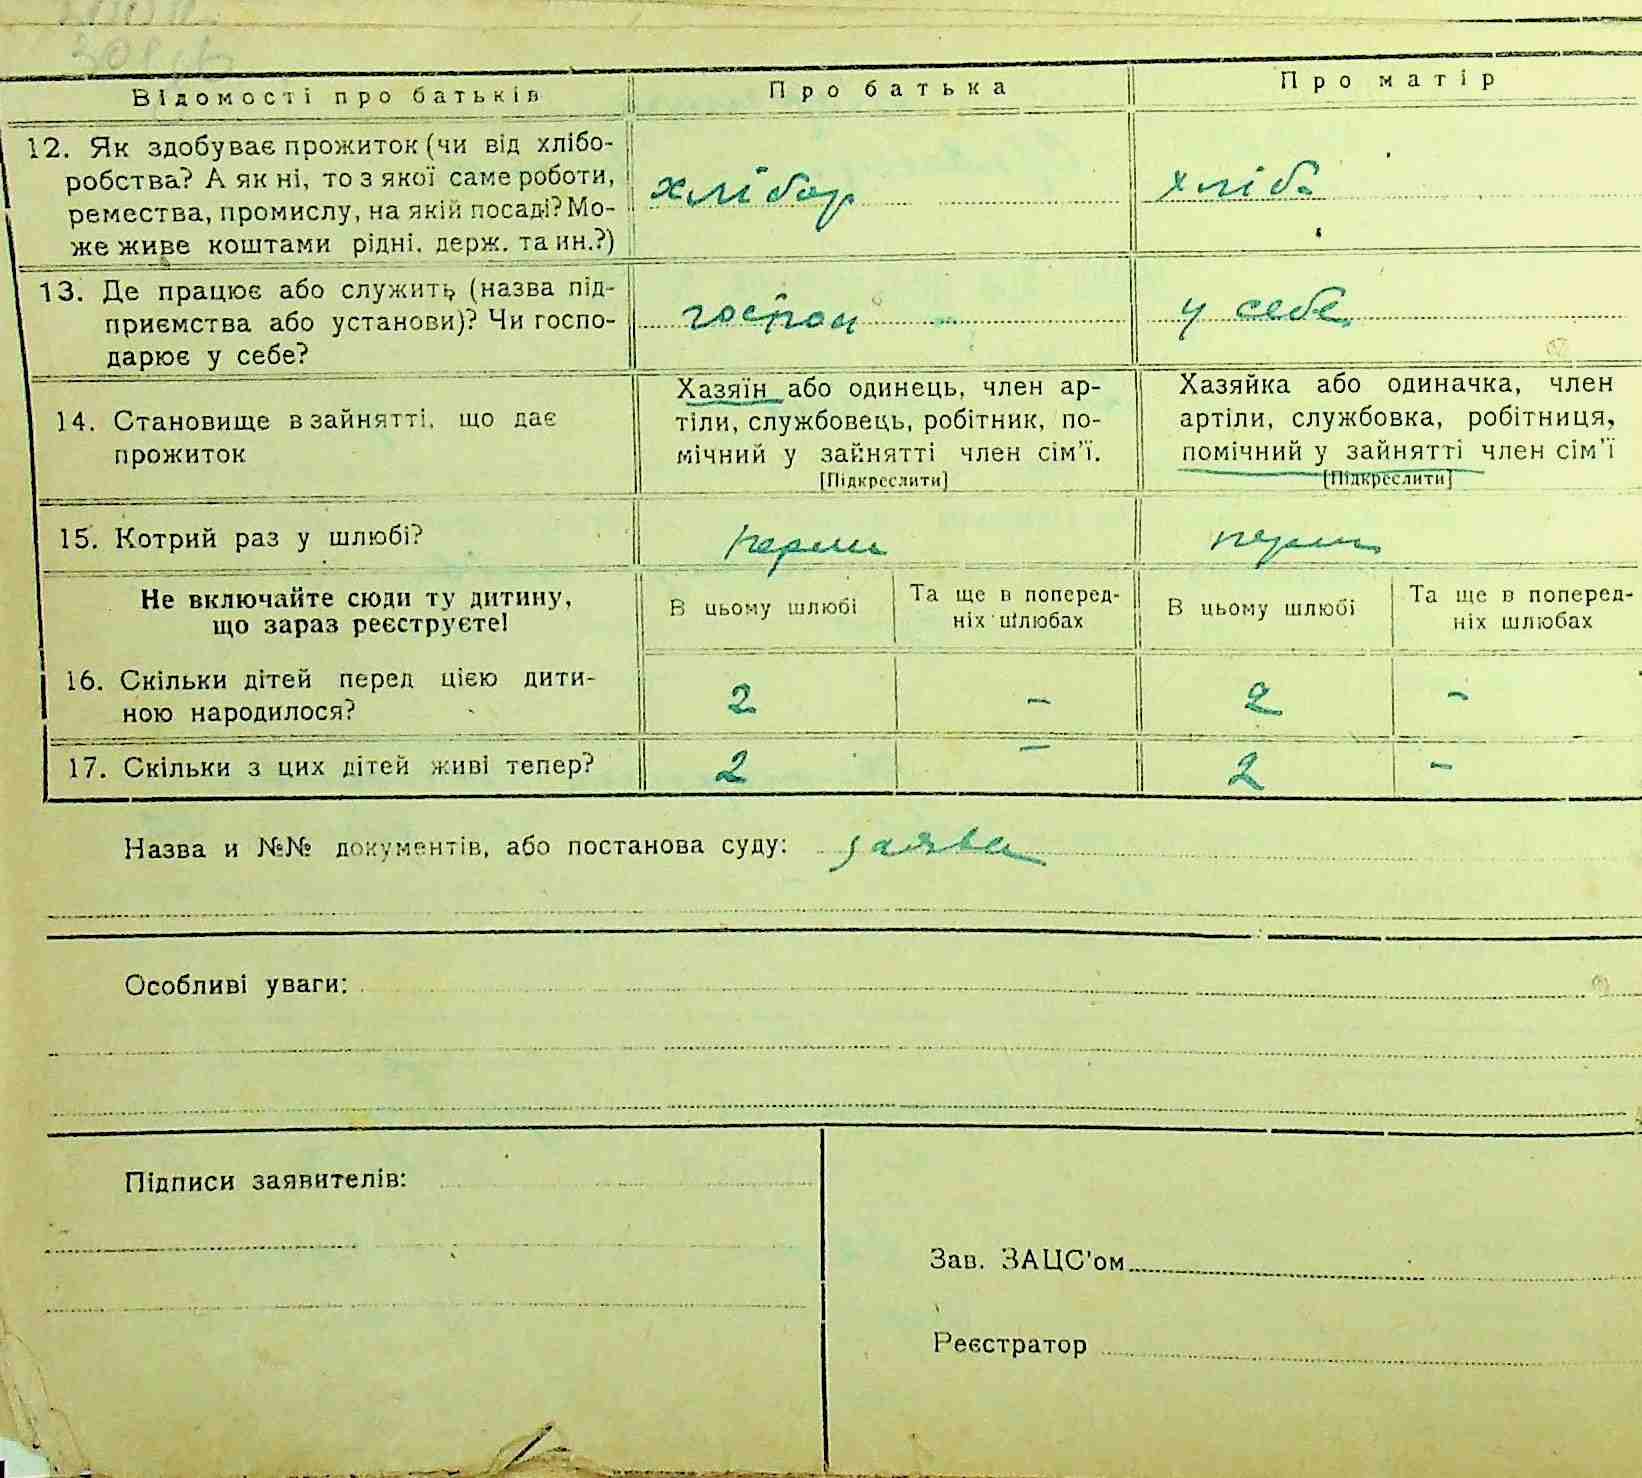 Відомості про батьків Про батька Про матір
12. Як здобуває прожиток (чи від хлібо-
робства? А як ні, то з якої саме роботи,
ремества, промислу, на якій посаді? Мо-
же живе коштами рідні. держ. та ин.?)
хлібор хліб
13. Де працює або служить (назва під-
приємства або установи)? Чи госпо-
дарює у себе?
господ у себе
14. Становище в зайнятті, що дає
прожиток
Хазяїн або одинець, член ар-
тіли, службовець, робітник, по-
мічний у зайнятті член сім'ї.
[Підкреслити]
Хазяйка або одиначка, член
артіли, службовка, робітниця,
помічний у зайнятті член сім'ї
[Підкреслити]
15. Котрий раз у шлюбі? перш перш
Не включайте сюди ту дитину,
що зараз реєструєте!
В цьому шлюбі
Та ще в поперед-
ніх шлюбах
В цьому шлюбі
Та ще в поперед-
ніх шлюбах
16. Скільки дітей перед цією дити-
ною народилося?
2 - 2 -
17. Скільки з цих дітей живі тепер? 2 - 2 -
Назва и №№ документів, або постанова суду: заява
Особливі уваги:
Підписи заявителів:
Зав. ЗАЦС'ом
Реєстратор